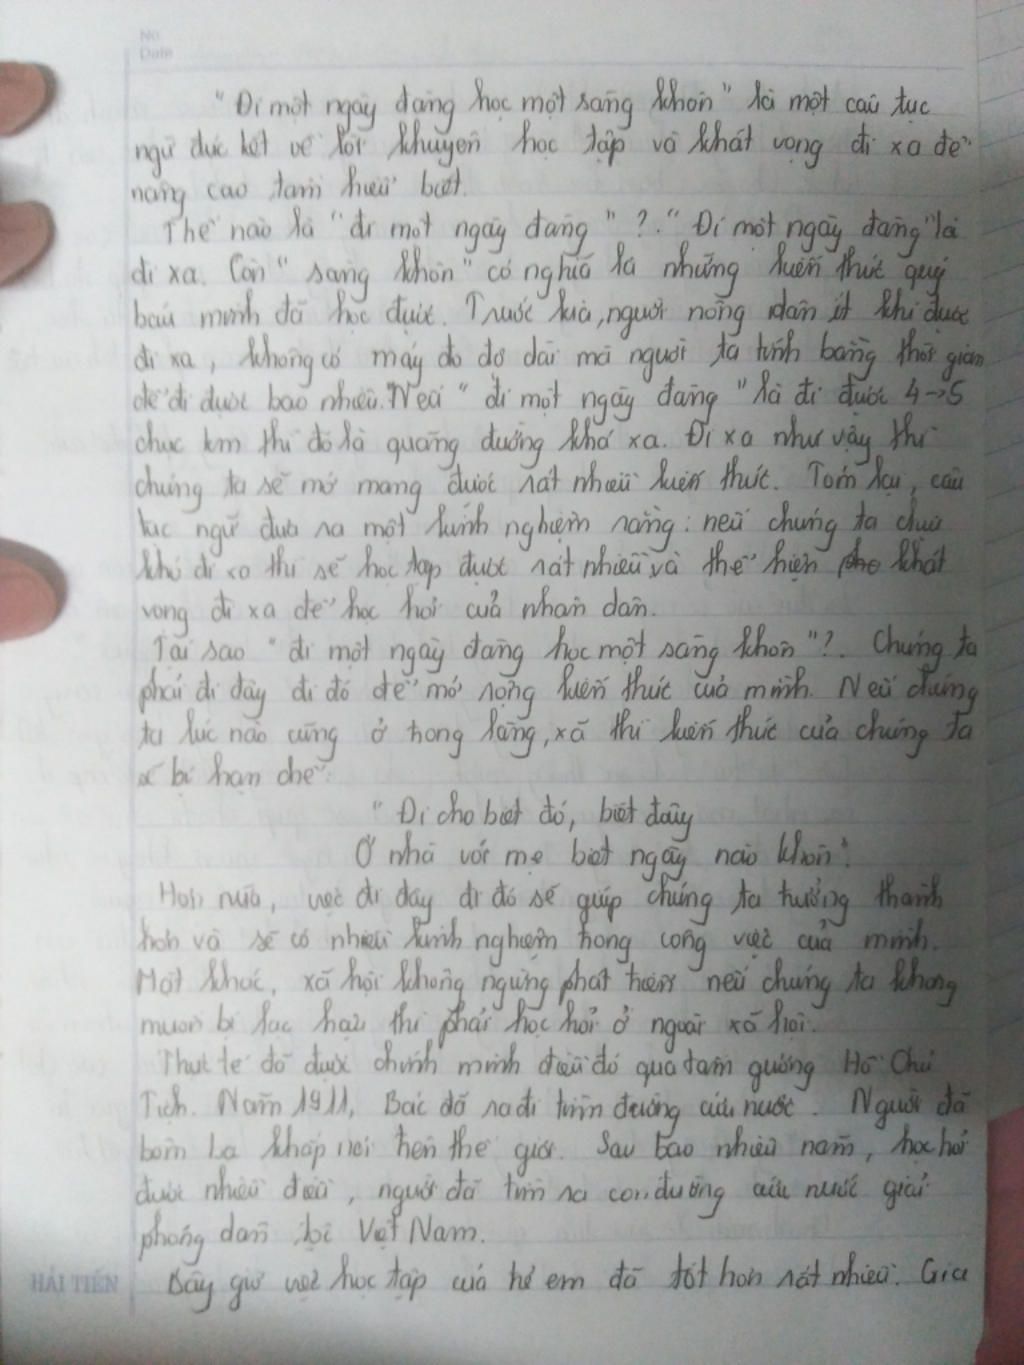 No.
Date
"Đi một ngày đàng học một sàng khôn" là một câu tục
ngữ đúc kết về lời khuyên học tập và khát vọng đi xa để
nâng cao tầm hiểu biết.
Thế nào là "đi một ngày đàng"?. "Đi một ngày đàng" là
đi xa. Còn "sàng khôn" có nghĩa là những kiến thức quý
báu mình đã học được. Trước kia, người nông dân ít khi được
đi xa, không có máy đo độ dài mà người ta tính bằng thời gian
để đi được bao nhiêu. Nếu "đi một ngày đàng" là đi được 4→5
chục km thì đó là quãng đường khá xa. Đi xa như vậy thì
chúng ta sẽ mở mang được rất nhiều kiến thức. Tóm lại, câu
tục ngữ đưa ra một kinh nghiệm rằng: nếu chúng ta chịu
khó đi xa thì sẽ học tập được rất nhiều và thể hiện khát
vọng đi xa để học hỏi của nhân dân.
Tại sao "đi một ngày đàng học một sàng khôn"?. Chúng ta
phải đi đây đi đó để mở rộng kiến thức của mình. Nếu chúng
ta lúc nào cũng ở trong làng, xã thì kiến thức của chúng ta
sẽ bị hạn chế:
"Đi cho biết đó, biết đây
Ở nhà với mẹ biết ngày nào khôn".
Hơn nữa, việc đi đây đi đó sẽ giúp chúng ta trưởng thành
hơn và sẽ có nhiều kinh nghiệm trong công việc của mình.
Mặt khác, xã hội không ngừng phát triển nếu chúng ta không
muốn bị lạc hậu thì phải học hỏi ở ngoài xã hội.
Thực tế đã được chính minh điều đó qua tấm gương Hồ Chủ
Tịch. Năm 1911, Bác đã ra đi tìm đường cứu nước. Người đã
bôn ba khắp nơi trên thế giới. Sau bao nhiêu năm, học hỏi
được nhiều điều, người đã tìm ra con đường cứu nước giải
phóng dân tộc Việt Nam.
Bây giờ việc học tập của trẻ em đã tốt hơn rất nhiều. Gia
HẢI TIẾN